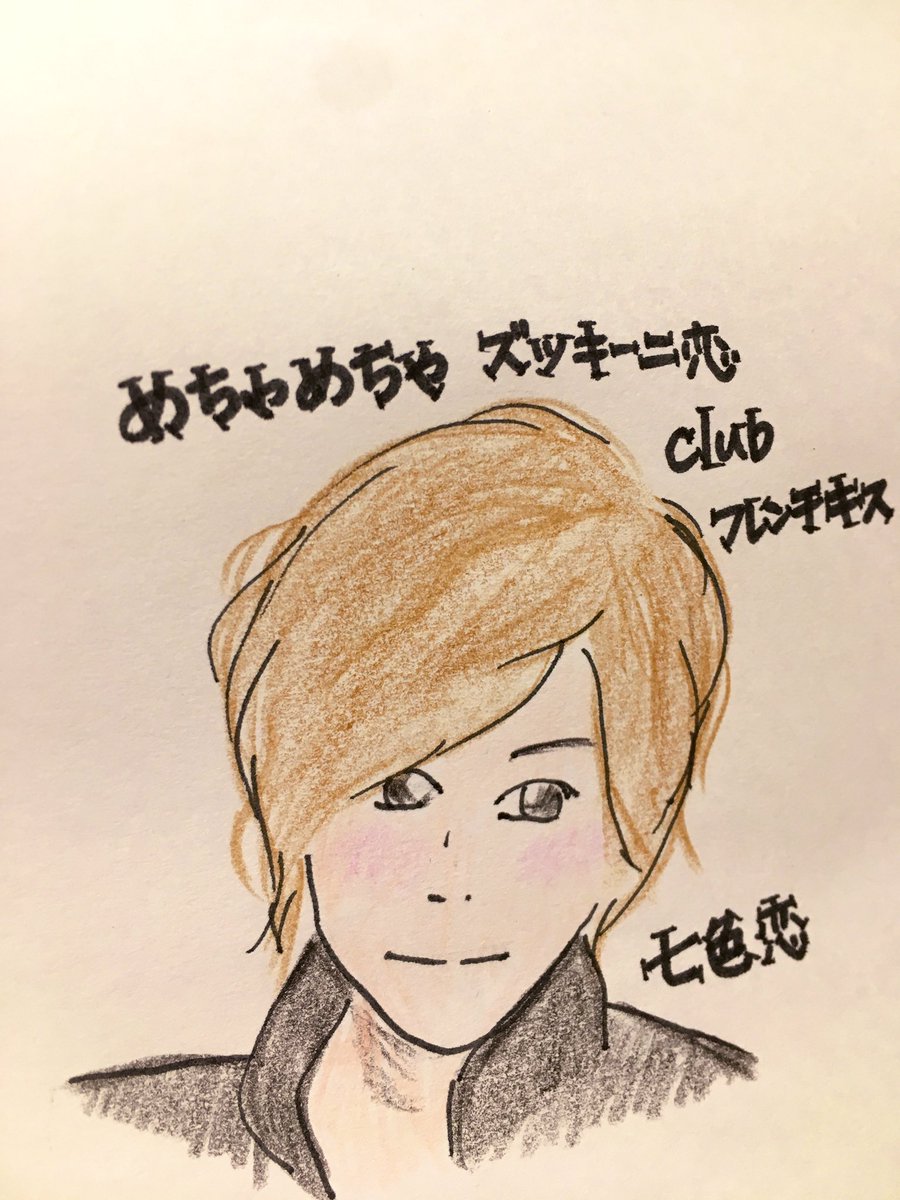 めちゃめちゃ ズッキーニ恋
club
フレンチキス
七色恋